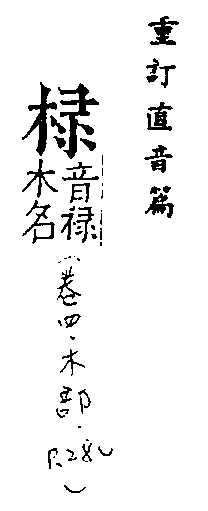 重訂直音篇
椂
音祿
木名
(卷四·木部·P.28)